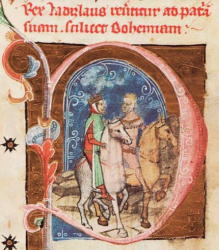 Rex Ladizlaus reuertitur ad patri
suam. scilicet Bohemiam: